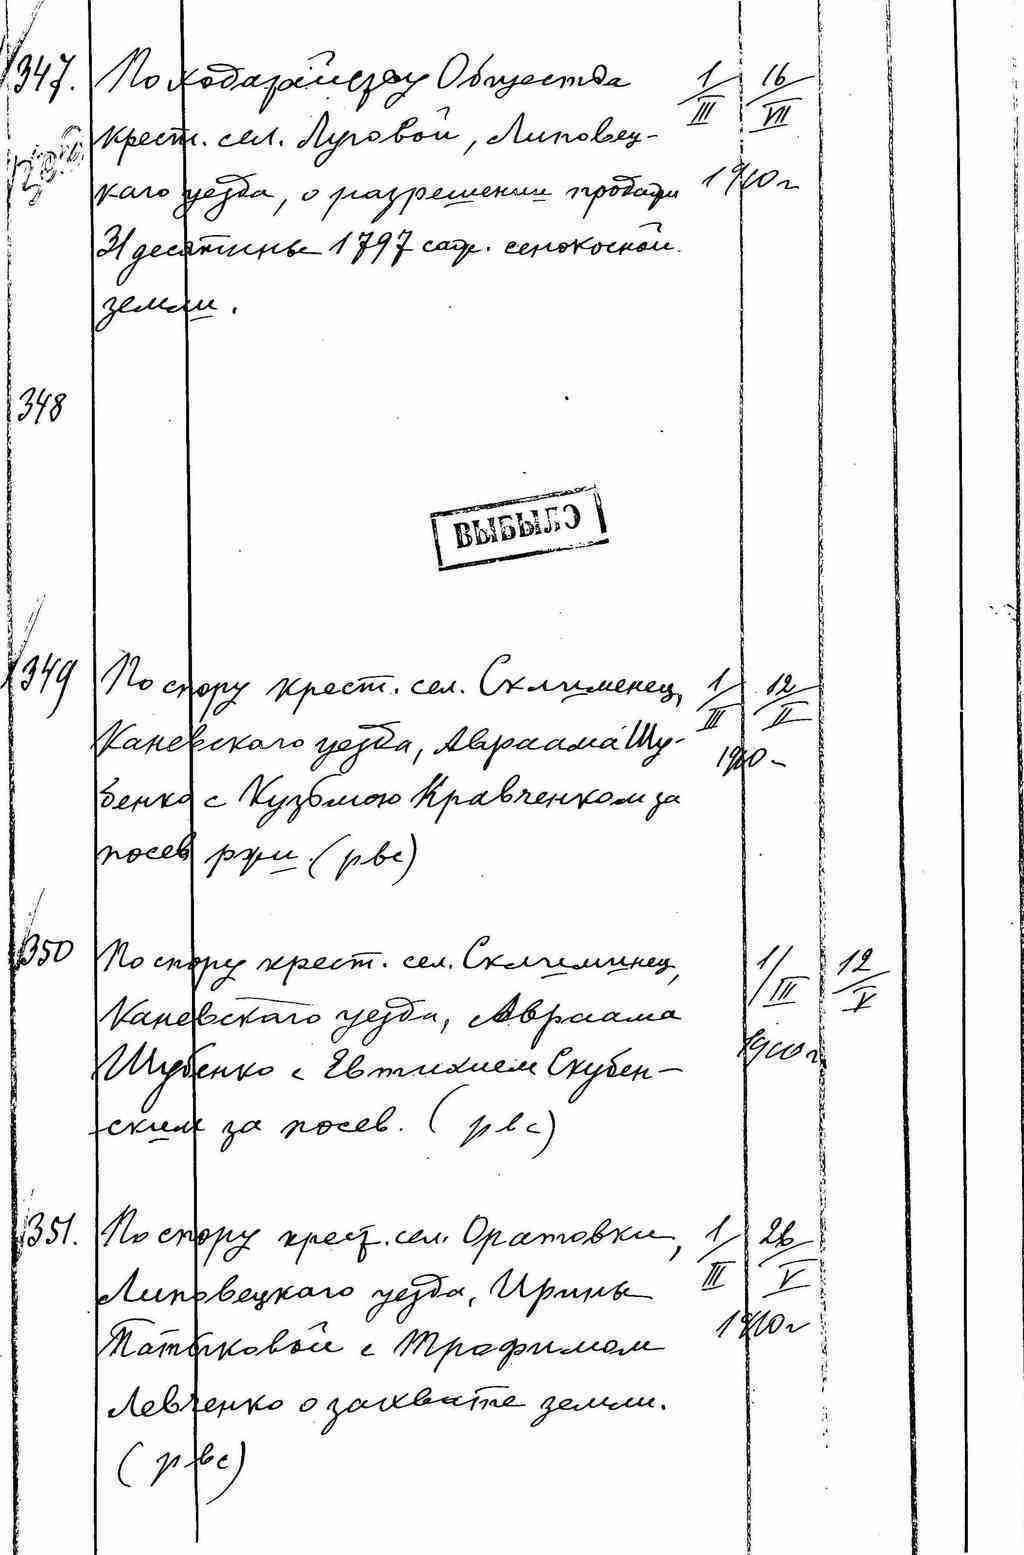 347. По ходатайству Общества 1/III 16/VII
крест. сел. Луговой, Липовец-
каго уезда, о разрешении продажи 1910 г
31 десятины 1797 саж. сенокосной
земли.
348
ВЫБЫЛО
349 По спору крест. сел. Склименец, 1/III 12/II
Каневскаго уезда, Авраама Шу- 1910
бенко с Кузьмою Кравченком за
посев ржи. (рвс)
350 По спору крест. сел. Склиминец, 1/III 12/V
Каневскаго уезда, Авраама
Шубенко с Евтихием Скубен- 1910 г
ским за посев. (рвс)
351. По спору крест. сел. Оратовки, 1/III 26/V
Липовецкаго уезда, Ирины
Татьковой с Трофимом 1910 г
Левченко о захвате земли.
(рвс)